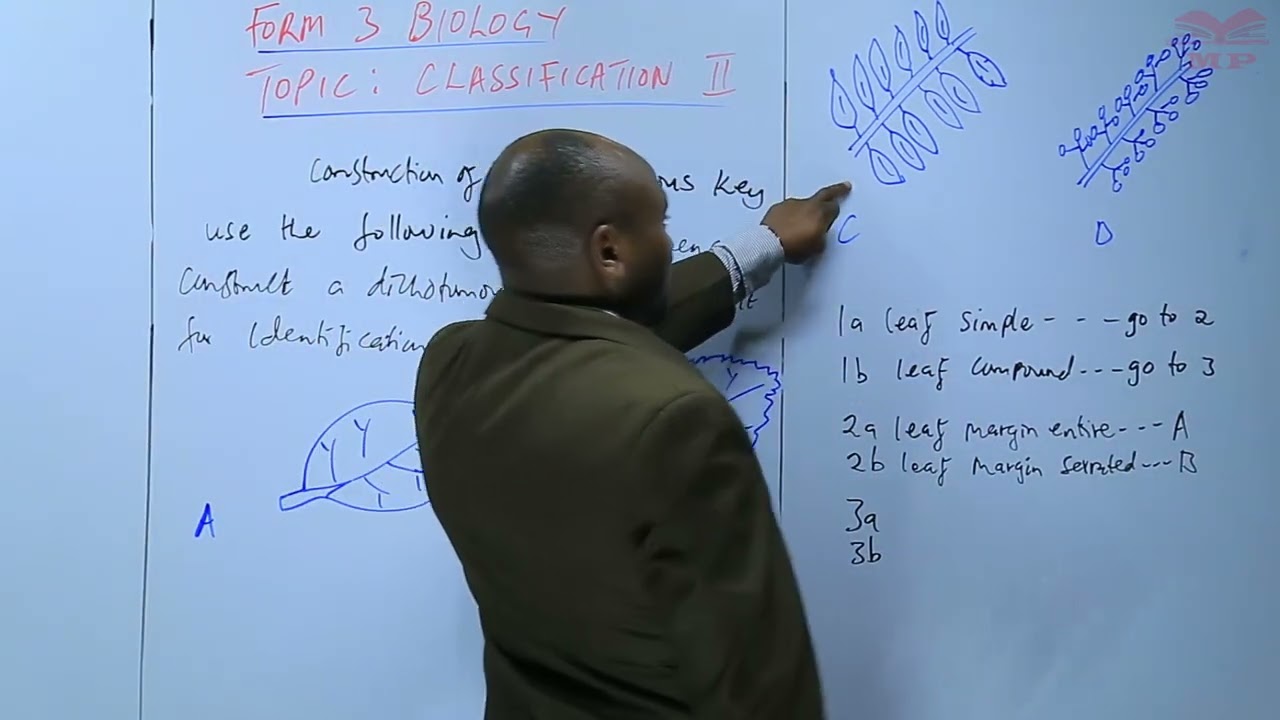 FORM 3 BIOLOGY
TOPIC: CLASSIFICATION II
Construction of
Key
use the following
Construct a
for Identification
A
C
D
1a leaf simple - - - go to 2
1b leaf compound - - - go to 3
2a leaf margin entire - - - A
2b leaf margin serrated - - - B
3a
3b
MP